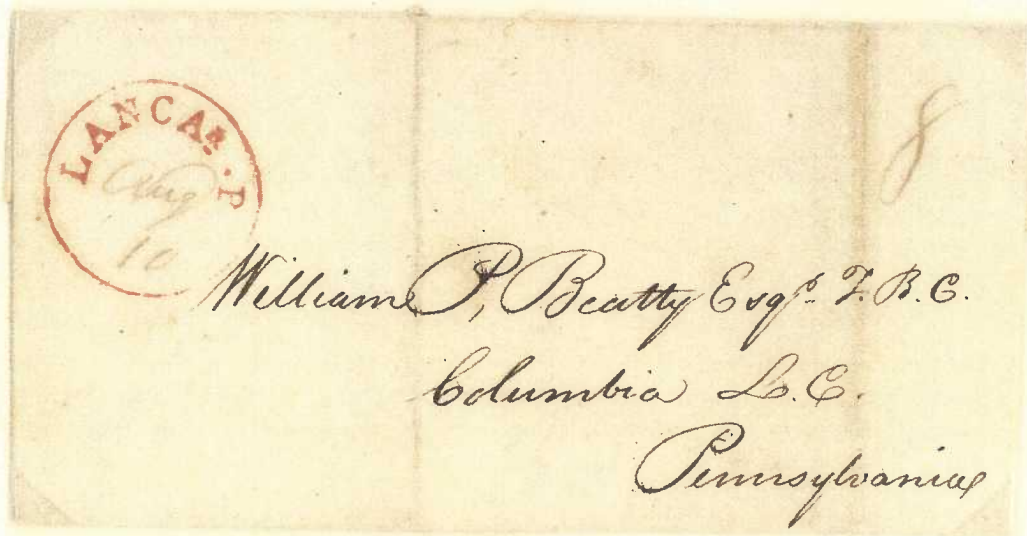 LANCAR. P
Aug
10
8
William P, Beatty Esqr. T. B. C.
Columbia L. C.
Pennsylvania